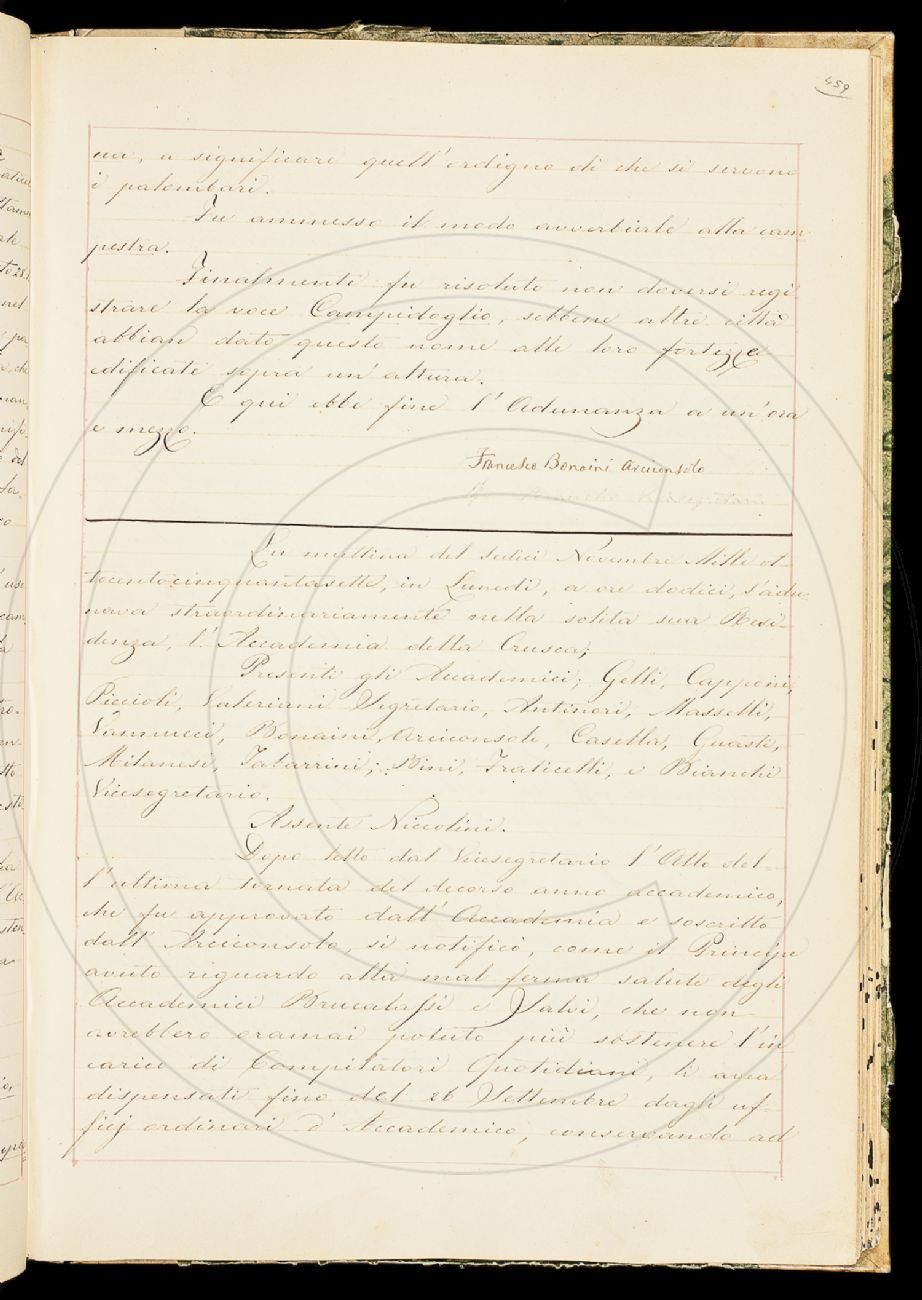 459
na, a significare quell'ordigno di che si servono
i palombari.
Fu ammesso il modo avverbiale alla cam
pestra.
Finalmente fu risoluto non doversi regi
strare la voce Campidoglio, sebbene altre città
abbian dato questo nome alle loro fortezze
edificate sopra un'altura.
E qui ebbe fine l'Adunanza a un'ora
e mezzo.
Francesco Bonaini Arciconsolo
La mattina del sedici Novembre Mille ot-
tocentocinquantasette, in Lunedì, a ore dodici, s'adu-
nava straordinariamente nella solita sua Resi-
denza, l'Accademia della Crusca;
Presenti gli Accademici; Gelli, Capponi,
Piccioli, Valeriani Segretario, Antinori, Masselli,
Vannucci, Bonaini, Arciconsolo, Casella, Guasti,
Milanesi, Tabarrini; Bini, Fraticelli, e Bianchi
Vicesegretario.
Assente Niccolini.
Dopo letto dal Vicesegretario l'Atto del-
l'ultima tornata del decorso anno accademico,
che fu approvato dall'Accademia e soscritto
dall'Arciconsolo, si notificò, come il Principe
avuto riguardo alla mal ferma salute degli
Accademici Brucalassi e Salvi, che non
avrebbero oramai potuto più sostenere l'in
carico di Compilatori Quotidiani, li avea
dispensati fino del 26 Settembre dagli uf-
ficj ordinari d'Accademico, conservando ad